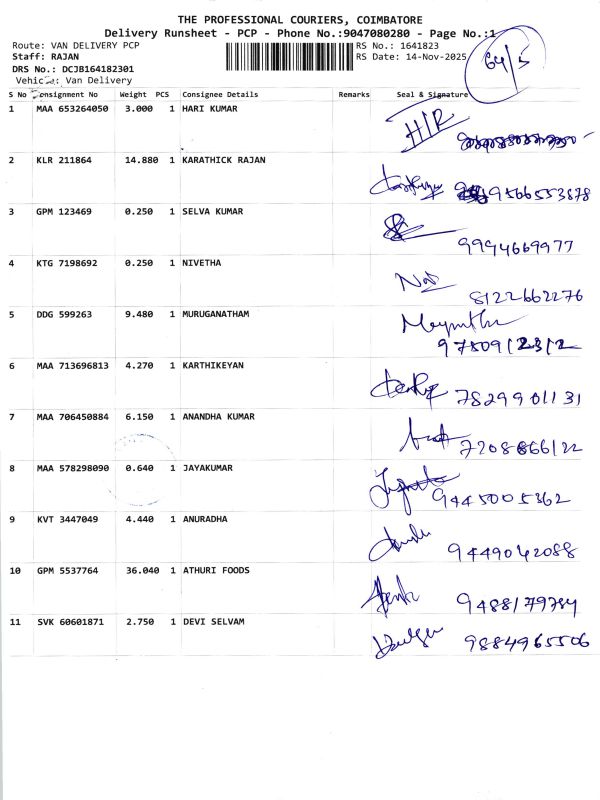 THE PROFESSIONAL COURIERS, COIMBATORE
Delivery Runsheet - PCP - Phone No.:9047080280 - Page No.:1
Route: VAN DELIVERY PCP RS No.: 1641823
Staff: RAJAN RS Date: 14-Nov-2025
64/5
DRS No.: DCJB164182301
Vehicle: Van Delivery
S No Consignment No Weight PCS Consignee Details Remarks Seal & Signature
1 MAA 653264050 3.000 1 HARI KUMAR
2 KLR 211864 14.880 1 KARATHICK RAJAN 9566553878
3 GPM 123469 0.250 1 SELVA KUMAR
9994669977
4 KTG 7198692 0.250 1 NIVETHA
8122662276
5 DDG 599263 9.480 1 MURUGANATHAM
9750912312
6 MAA 713696813 4.270 1 KARTHIKEYAN
7829901131
7 MAA 706450884 6.150 1 ANANDHA KUMAR
7208866122
8 MAA 578298090 0.640 1 JAYAKUMAR
9445005362
9 KVT 3447049 4.440 1 ANURADHA
9449042088
10 GPM 5537764 36.040 1 ATHURI FOODS
9488179784
11 SVK 60601871 2.750 1 DEVI SELVAM
9884965506